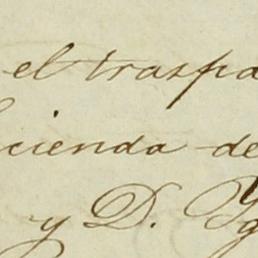 el traspa
cienda de
y D. Yg